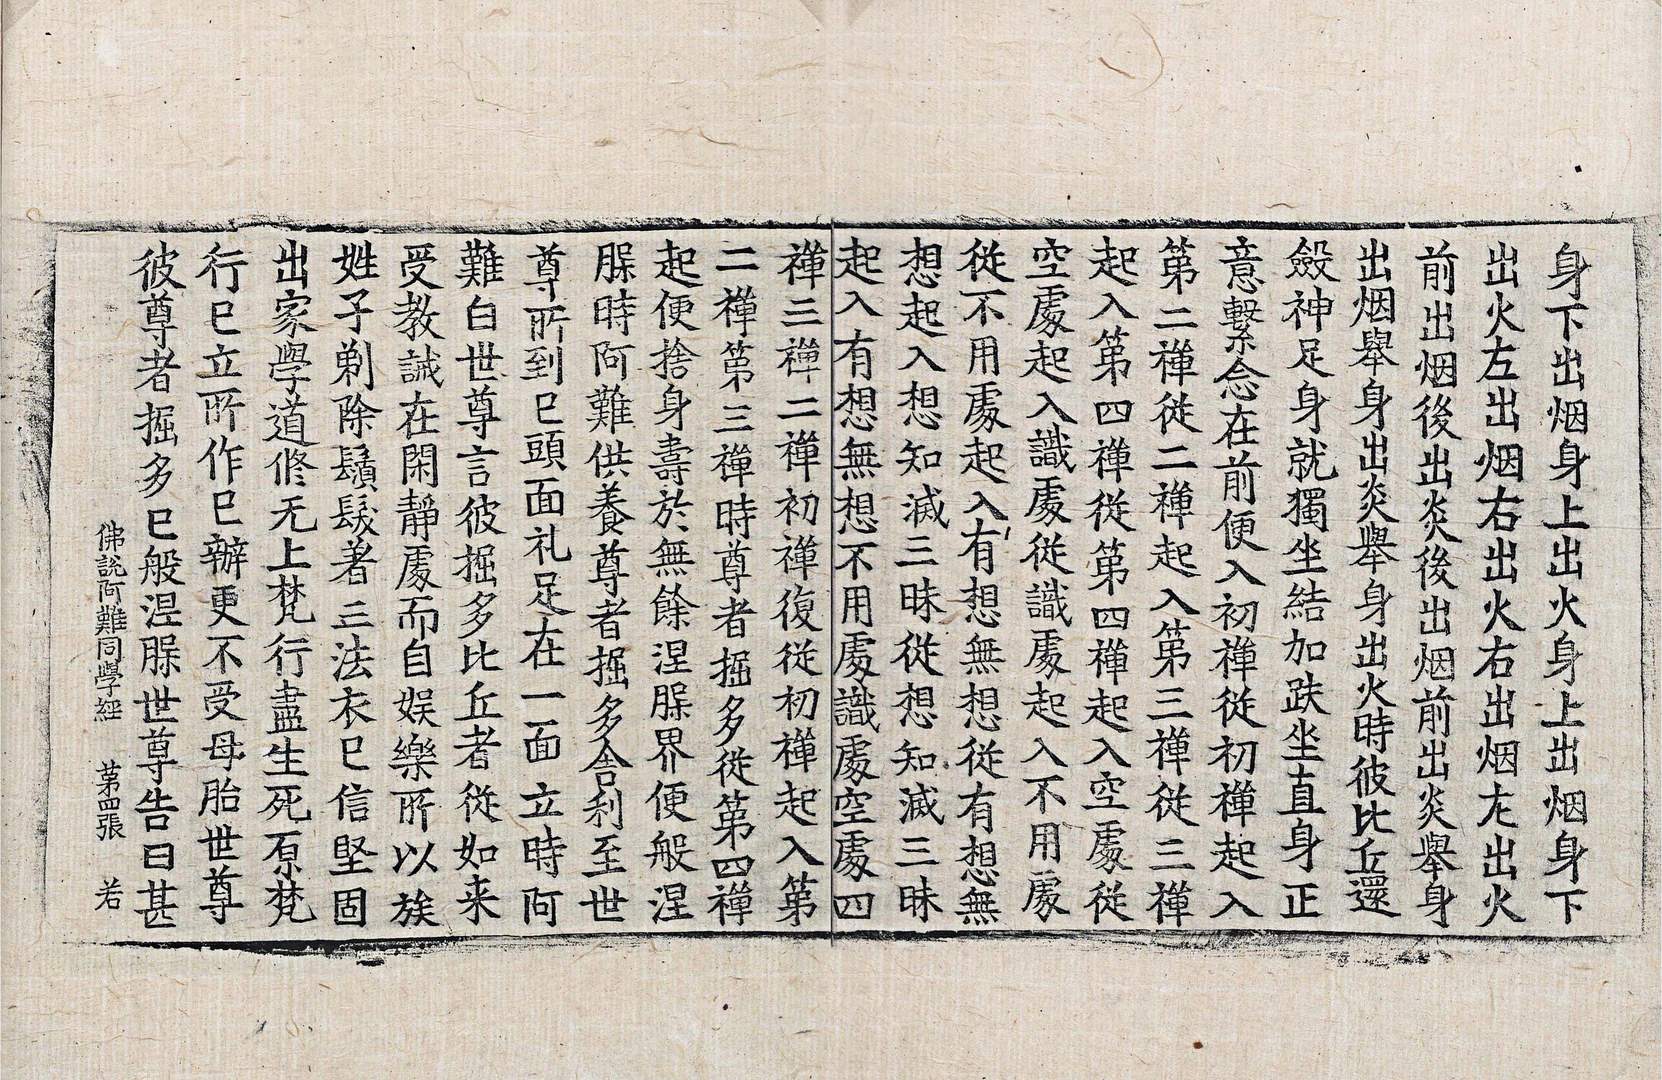 身下出烟身上出火身上出烟身下
出火左出烟右出火右出烟左出火
前出烟後出炎後出烟前出炎舉身
出烟舉身出炎舉身出火時彼比丘還
斂神足身就獨坐結加趺坐直身正
意繫念在前便入初禪從初禪起入
第二禪從二禪起入第三禪從三禪
起入第四禪從第四禪起入空處從
空處起入識處從識處起入不用處
從不用處起入有想無想從有想無
想起入想知滅三昧從想知滅三昧
起入有想無想不用處識處空處四
禪三禪二禪初禪復從初禪起入第
二禪第三禪時尊者掘多從第四禪
起便捨身壽於無餘涅槃界便般涅
槃時阿難供養尊者掘多舍利至世
尊所到已頭面礼足在一面立時阿
難白世尊言彼掘多比丘者從如来
受教誡在閑靜處而自娱樂所以族
姓子剃除鬚髮著三法衣已信堅固
出家學道修无上梵行盡生死原梵
行已立所作已辦更不受母胎世尊
彼尊者掘多已般涅槃世尊告曰甚
佛說阿難同學經 第四張 若